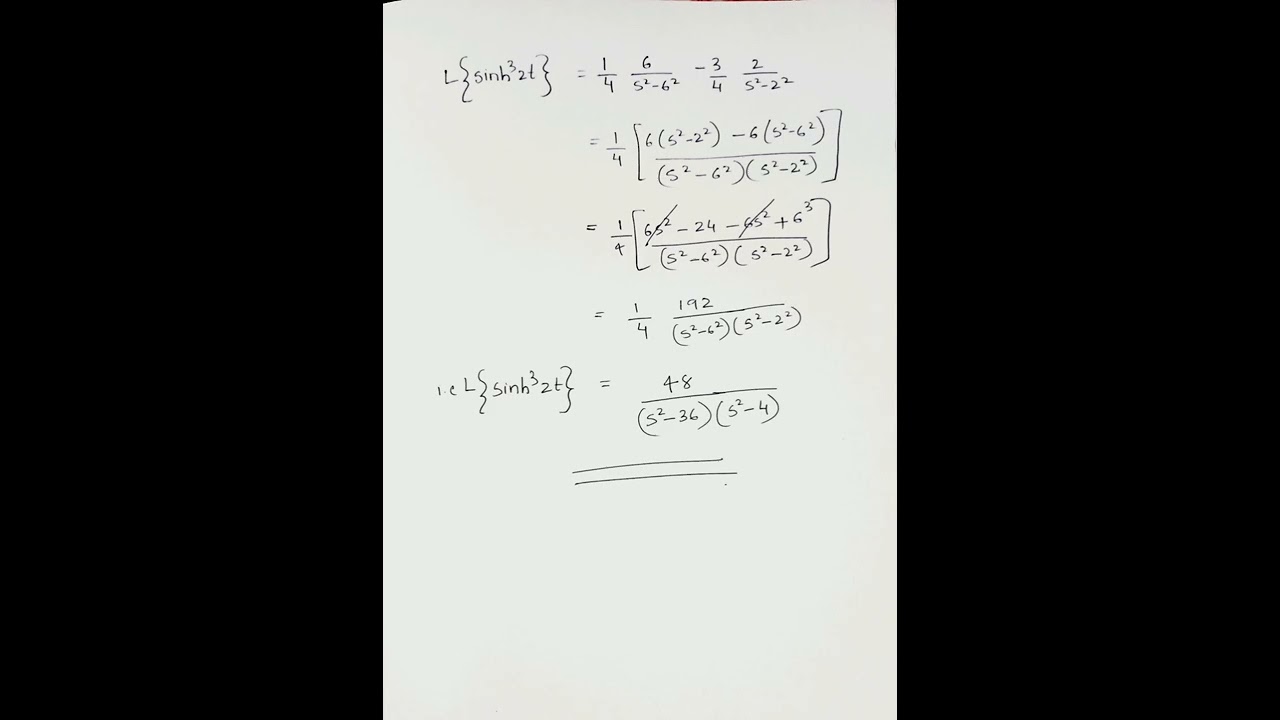 L{sinh³2t} = 1/4 6/(s²-6²) - 3/4 2/(s²-2²)
= 1/4 [6(s²-2²) - 6(s²-6²) / (s²-6²)(s²-2²)]
= 1/4 [6s² - 24 - 6s² + 6³ / (s²-6²)(s²-2²)]
= 1/4 192/(s²-6²)(s²-2²)
i.e L{sinh³2t} = 48/(s²-36)(s²-4)